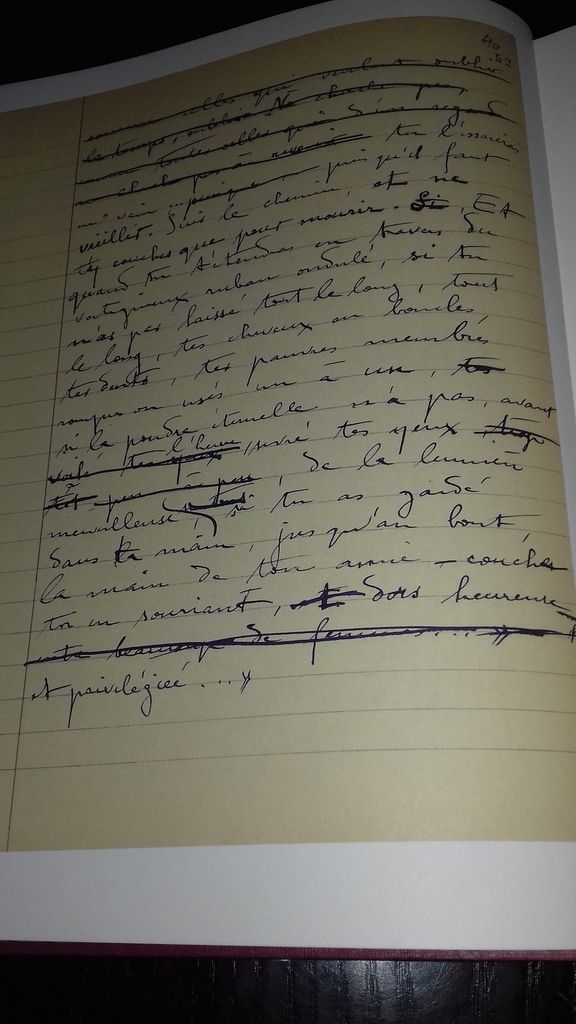 40
52
comme celles qui veulent oublier
le temps, oublier. Ne cherche pas,
comme toutes celles que d'un regard
tu l'essaierais
en vain... puisque, puisqu'il faut
vieillir. Suis le chemin, et ne
t'y couches que pour mourir. Si, Et
quand tu t'étendras en travers du
vertigineux ruban ondulé, si tu
n'as pas laissé tout le long, tout
le long, tes cheveux en boucles,
tes dents, tes pauvres membres
rompus ou usés un à un, tes
si la poudre éternelle n'a pas, avant
voilé l'heure, sevré tes yeux
tôt peu à peu, de la lumière
merveilleuse, si tu as gardé
dans ta main, jusqu'au bout,
la main de ton amie – couches
toi en souriant, et dors heureuse
beaucoup de femmes... »
et privilégiée ... »